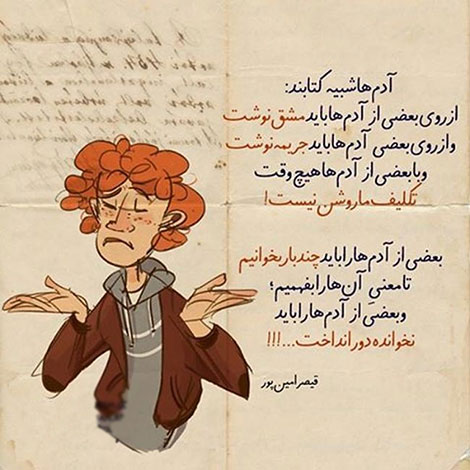 آدم‌ها شبیه کتابند:
از روی بعضی از آدم‌ها باید مشق نوشت
و از روی بعضی آدم‌ها باید جریمه نوشت
و با بعضی از آدم‌ها هیچ وقت
تکلیف ما روشن نیست!
بعضی از آدم‌ها را باید چند بار بخوانیم
تا معنی آن‌ها را بفهمیم؛
و بعضی از آدم‌ها را باید
نخوانده دور انداخت...!!!
قیصر امین پور